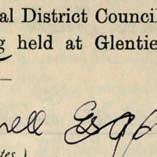 al District Counci
g held at Glentie
nell Esq